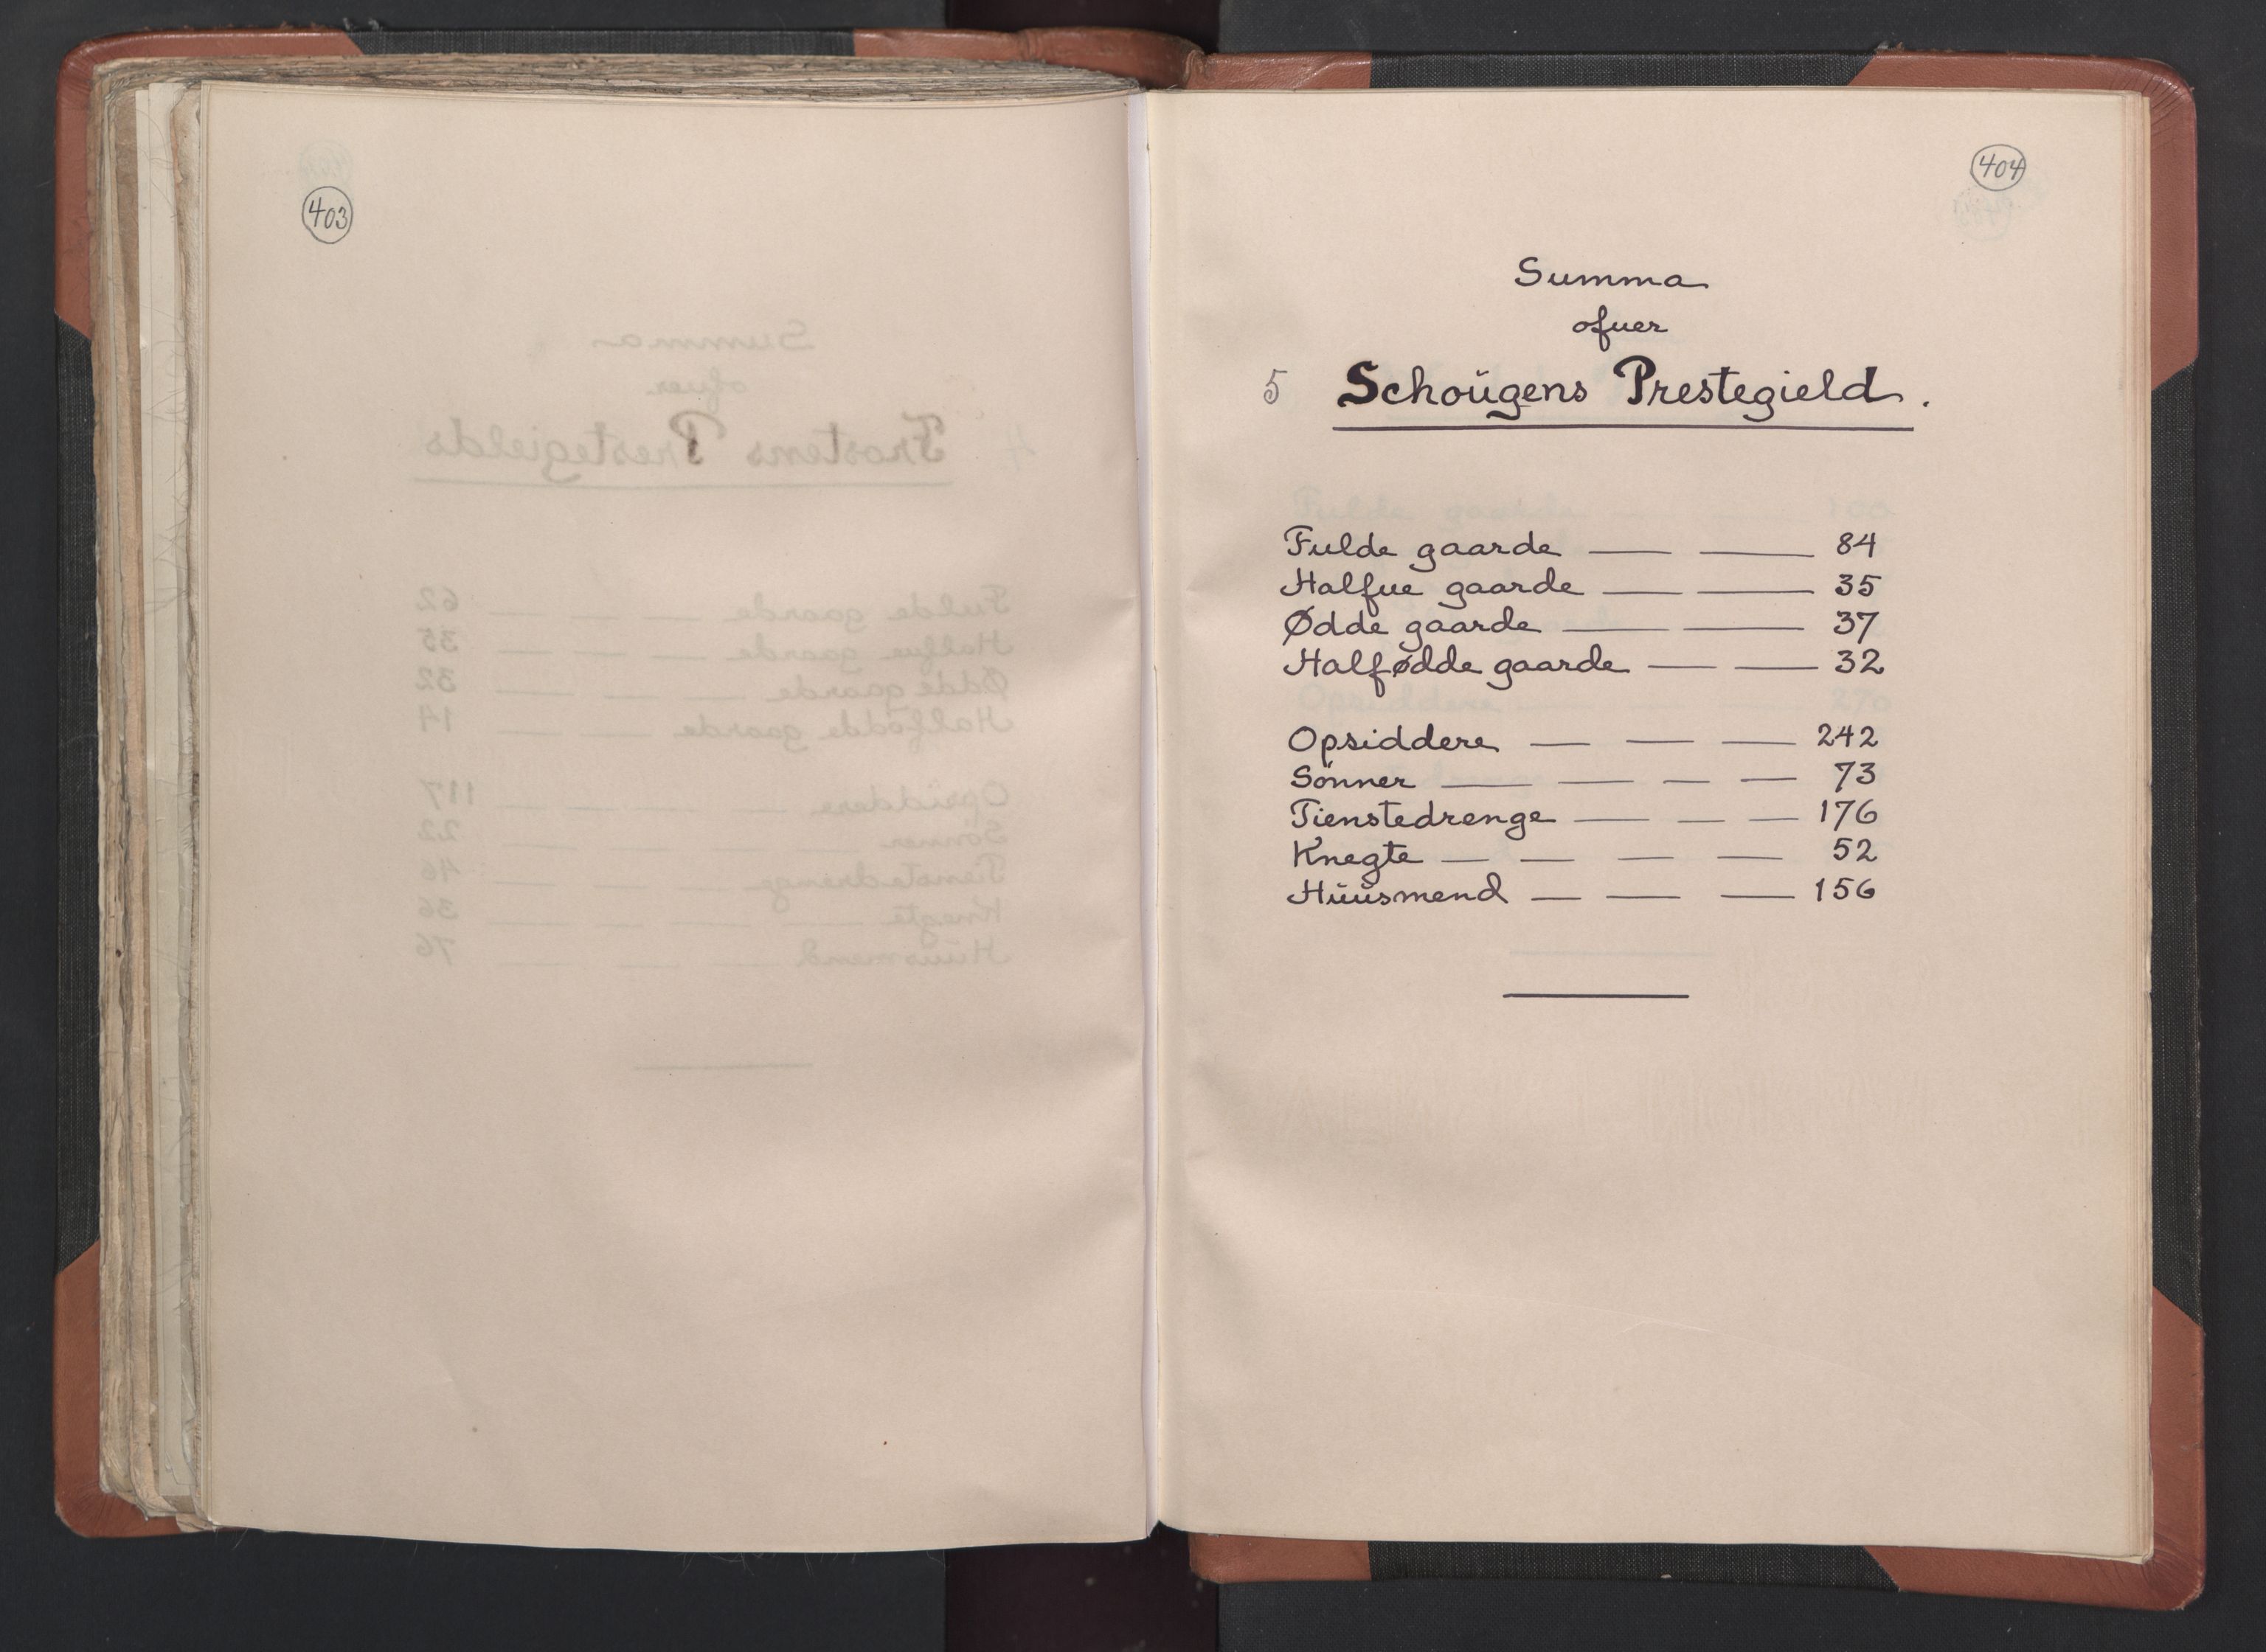 403
404
Summa
ofuer
5 Schoügens Prestegield.
Fulde gaarde — — 84
Halfue gaarde — — 35
Ødde gaarde — — 37
Halfødde gaarde — — 32
Opsiddere — — — 242
Sönner — — — — 73
Tienstedrenge — — — 176
Knegte — — — — 52
Hüüsmend — — — 156